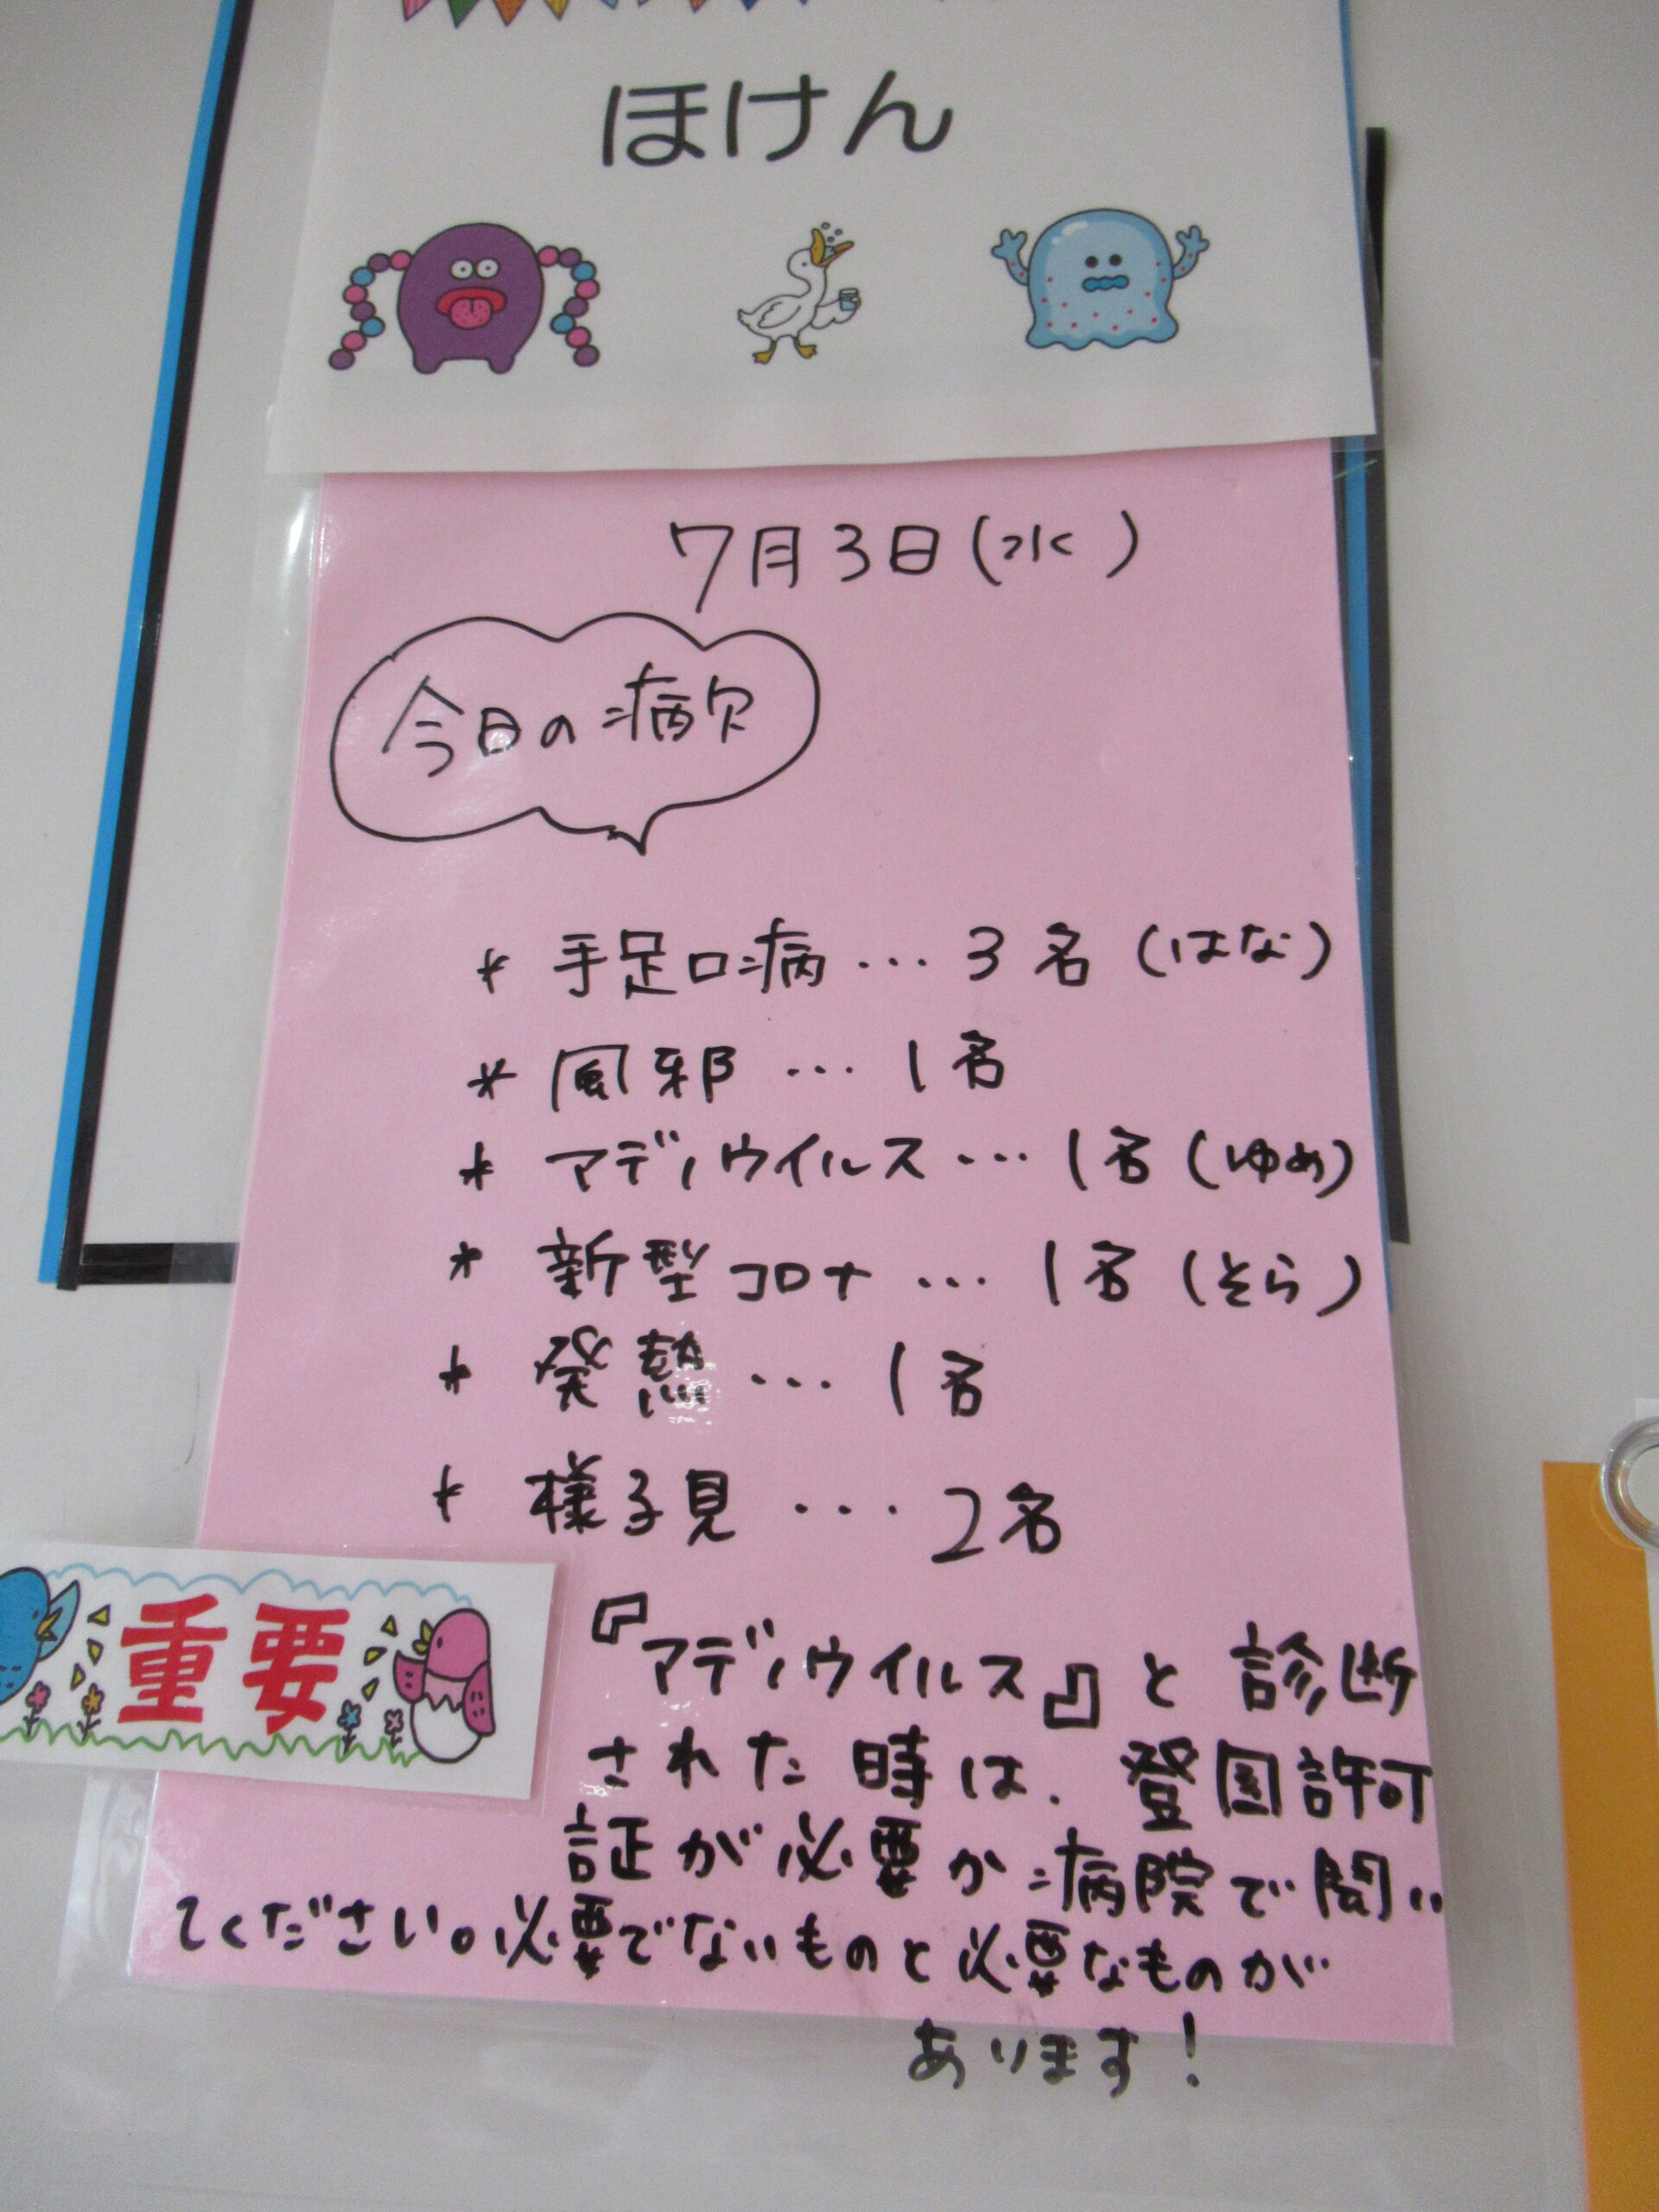 ほけん
7月3日(水)
今日の病欠
* 手足口病…3名(はな)
* 風邪…1名
* アデノウイルス…1名(ゆめ)
* 新型コロナ…1名(そら)
* 発熱…1名
* 様子見…2名
重要
『アデノウイルス』と診断
された時は、登園許可
証が必要か病院で聞い
てください。必要でないものと必要なものが
あります!